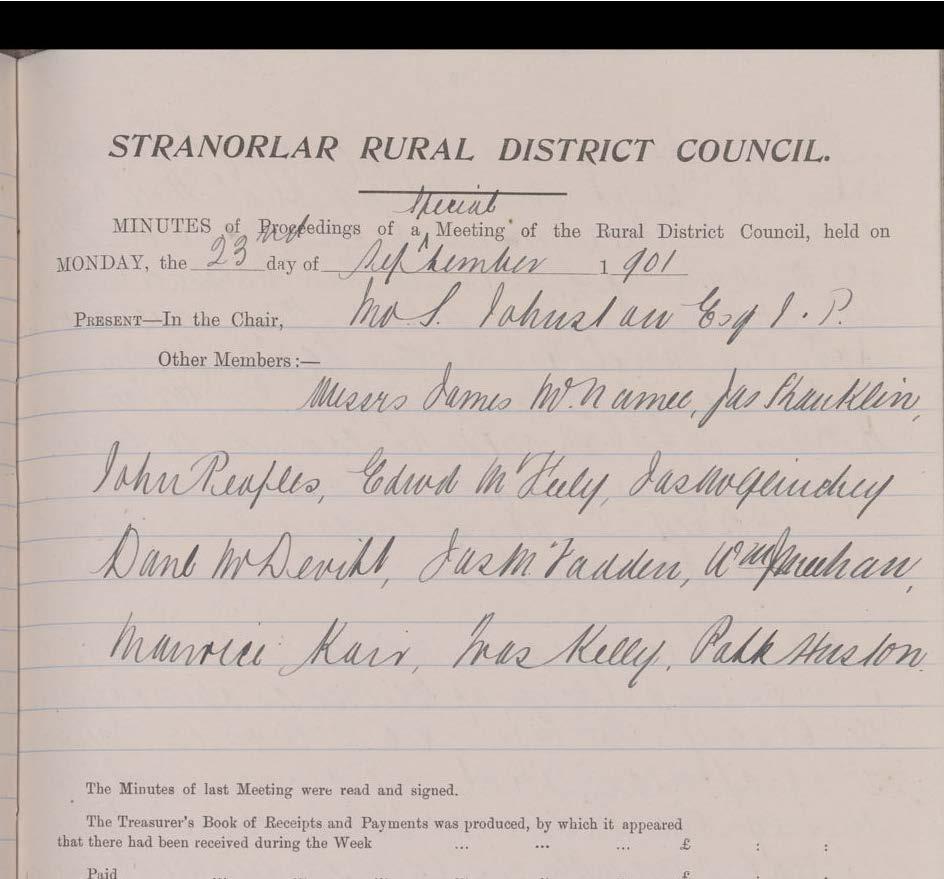 STRANORLAR RURAL DISTRICT COUNCIL.
special
MINUTES of Proceedings of a ^ Meeting of the Rural District Council, held on
MONDAY, the 23rd day of September 1901
PRESENT—In the Chair, Jno. S. Johnston Esq J. P.
Other Members:—
Messrs James McNamee, Jas Shanklin,
John Peoples, Edwd McFeely, Jas McGlinchey
Danl McDevitt, Jas McFadden, Wm Meehan,
Maurice Karr, Thos Kelly, Patk Huston
The Minutes of last Meeting were read and signed.
The Treasurer's Book of Receipts and Payments was produced, by which it appeared
that there had been received during the Week ... ... ... £ : :
Paid ... ... ... ... £